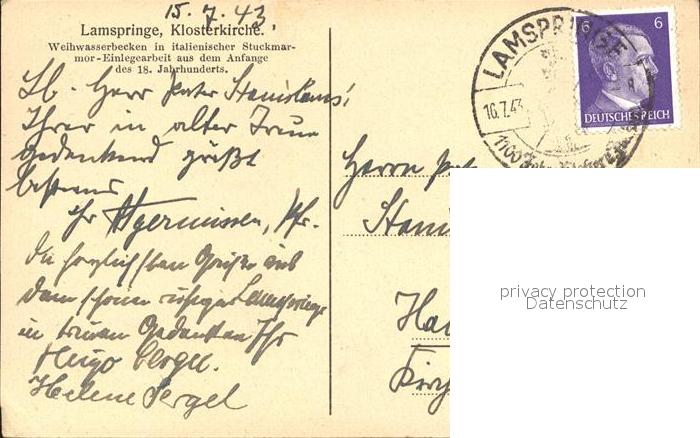 15.7.43.
Lamspringe, Klosterkirche.
Weihwasserbecken in italienischer Stuckmar-
mor-Einlegearbeit aus dem Anfange
des 18. Jahrhunderts.
Lb. Herr Pater Stanislaus!
Ihrer in alter Treue
gedenkend grüßt
bestens
Ihr Algermissen, Pfr.
die herzlichsten Grüße aus
dem schönen ruhigen Lamspringe
in treuen Gedenken Ihr
Hugo Sergel.
Helene Sergel
LAMSPRINGE
16.7.43
1100 Jahre
6 6
DEUTSCHES REICH
Herrn
Stani
Ha
privacy protection
Datenschutz